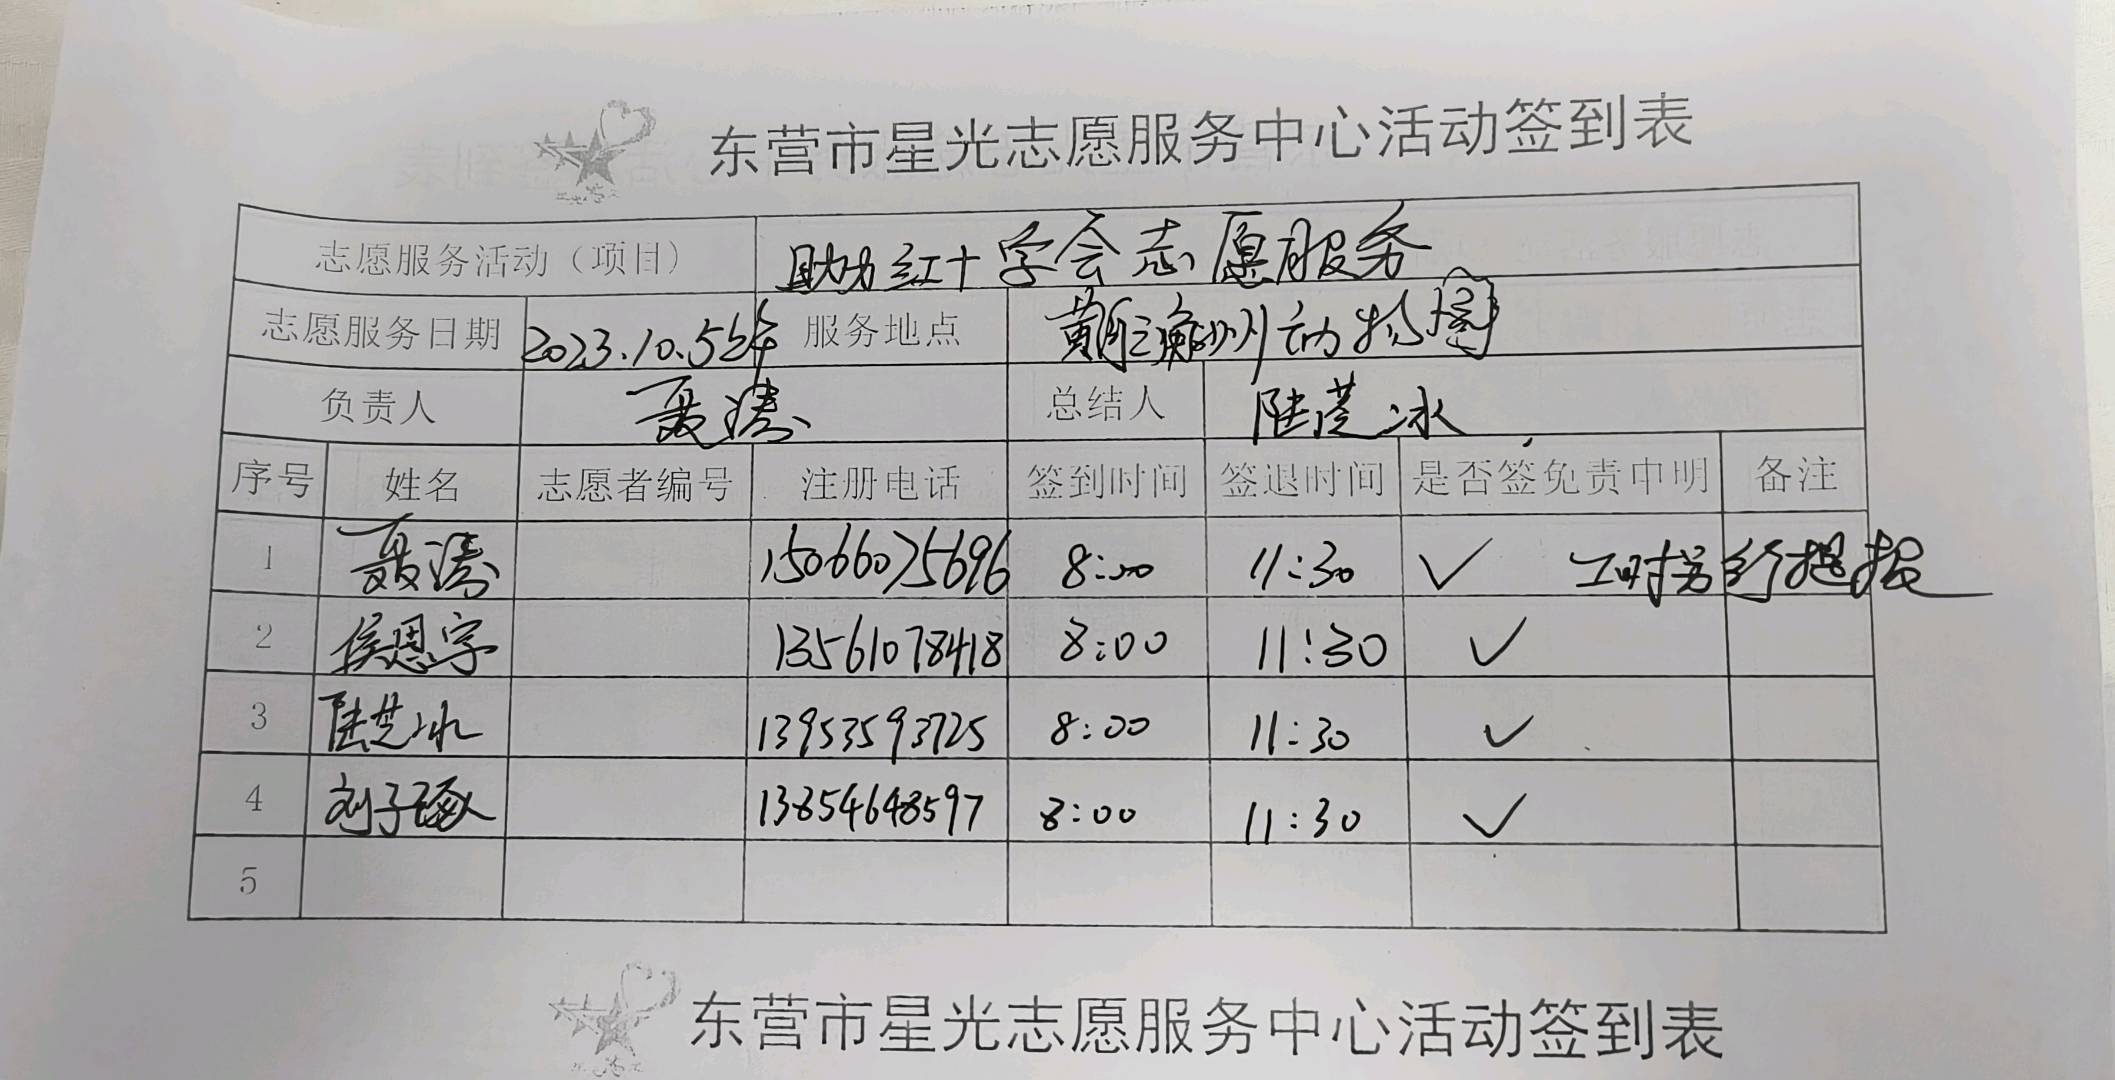 东营市星光志愿服务中心活动签到表
志愿服务活动（项目） 助力红十字会志愿服务
志愿服务日期 2023.10.5上午 服务地点 黄河三角洲动物园
负责人 聂涛 总结人 陆芝冰
序号 姓名 志愿者编号 注册电话 签到时间 签退时间 是否签免责申明 备注
1 聂涛 15066075696 8:00 11:30 ✓ 工时另行提报
2 侯恩宇 13561078418 8:00 11:30 ✓
3 陆芝冰 13953593725 8:00 11:30 ✓
4 刘子琢 13854648597 8:00 11:30 ✓
5
东营市星光志愿服务中心活动签到表